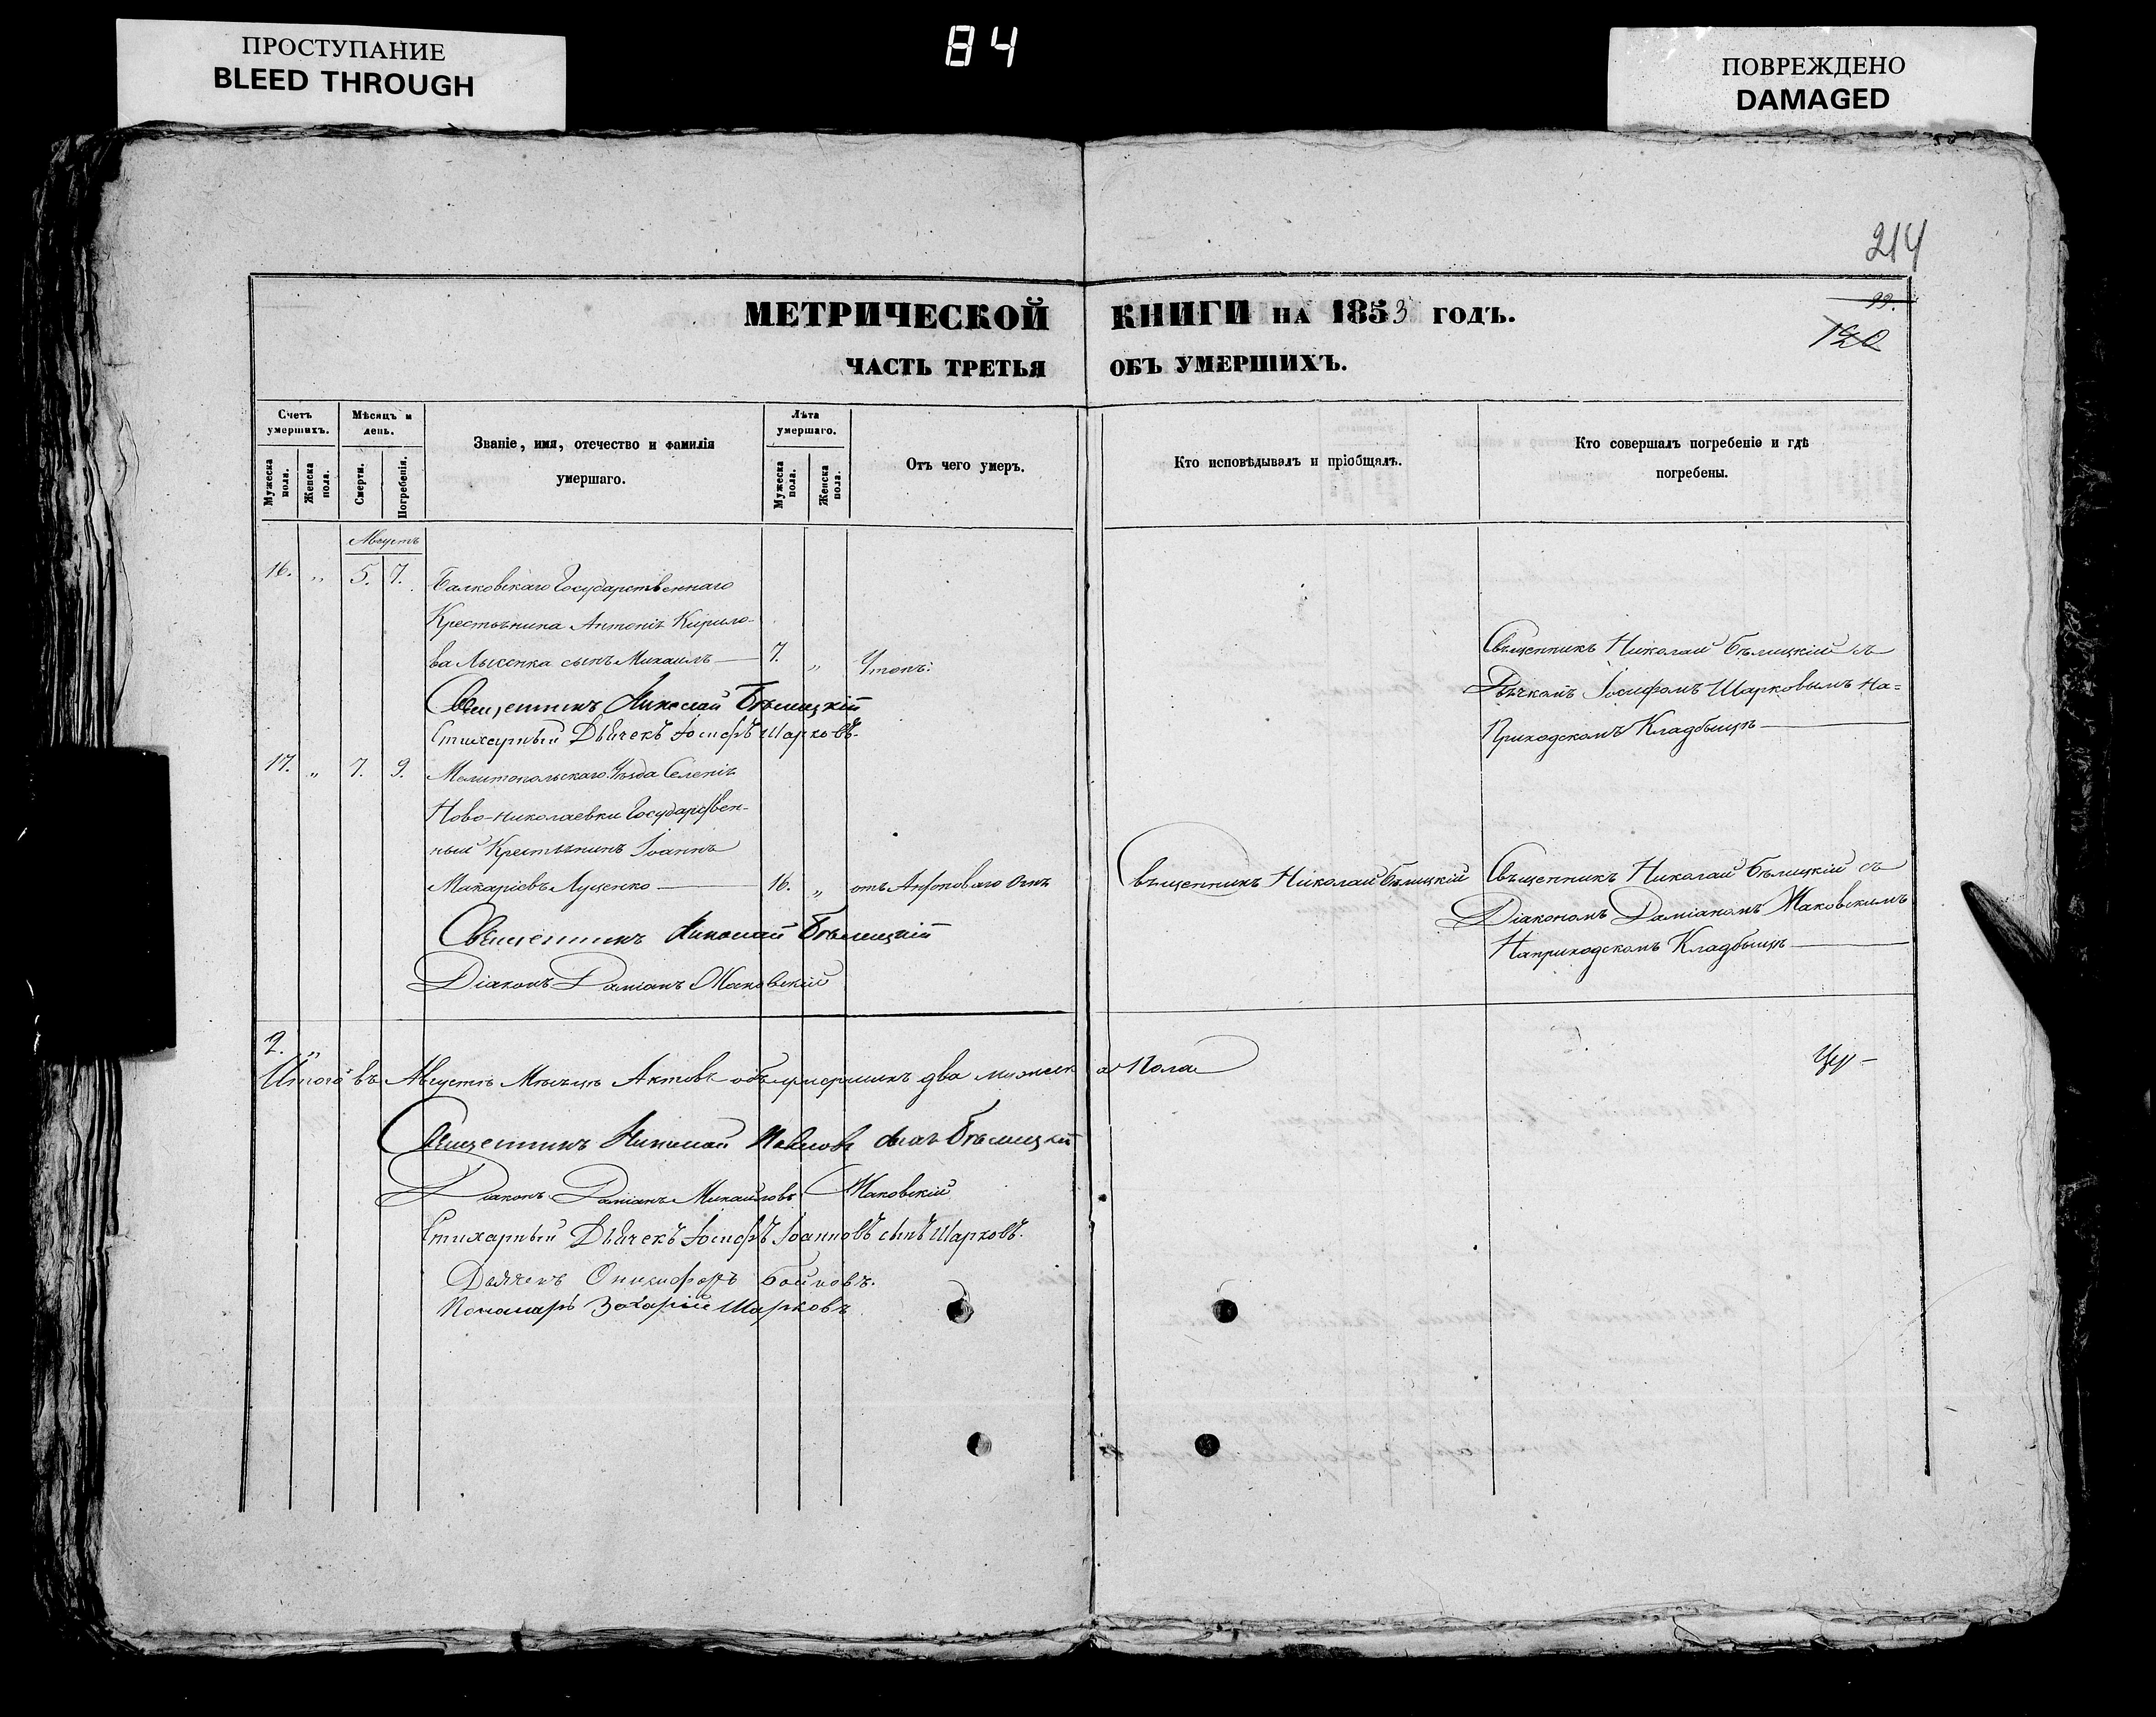 ПРОСТУПАНИЕ
BLEED THROUGH
84
ПОВРЕЖДЕНО
DAMAGED
214
МЕТРИЧЕСКОЙ КНИГИ НА 1853 ГОДЪ.
99.
120
ЧАСТЬ ТРЕТЬЯ ОБЪ УМЕРШИХЪ.
Счетъ умершихъ.
Мужеска пола.
Женска пола.
Мѣсяцъ и день.
Смерти.
Погребенія.
Званіе, имя, отечество и фамилія
умершаго.
Лѣта умершаго.
Мужеска пола.
Женска пола.
Отъ чего умеръ.
Кто исповѣдывалъ и пріобщалъ.
Кто совершалъ погребеніе и гдѣ
погребены.
Августъ
16. „ 5. 7. Балковскаго Государственнаго
Крестьянина Антонія Кирило-
ва Лысенка сынъ Михаилъ — 7. „ Утопъ.
Священникъ Николай Бѣлицкій съ
Дьячкомъ Іосифомъ Шарковымъ На=
Приходскомъ Кладбыщѣ —
Священникъ Николай Бѣлицкій
Стихарный Дьячекъ Іосифъ Шарковъ.
17. „ 7. 9. Мелитопольскаго Уѣзда Селенія
Ново-Николаевки Государствен-
ный Крестьянинъ Іоаннъ
Макаріевъ Луценко — 16. „ отъ Антоноваго Огня
Священникъ Николай Бѣлицкій
Священникъ Николай Бѣлицкій съ
Діакономъ Даміаномъ Маковскимъ
На приходскомъ Кладбыщѣ —
Священникъ Николай Бѣлицкій
Діаконъ Даміанъ Маковскій
2. „
Итого въ Августѣ Мѣсяцѣ Актовъ объ умершихъ два мужеска Пола
Священникъ Николай Павловъ сынъ Бѣлицкій
Діаконъ Даміанъ Михайловъ Маковскій
Стихарный Дьячекъ Іосифъ Іоанновъ сынъ Шарковъ.
Дьячекъ Онисифоръ Бойковъ.
Пономарь Захарій Шарковъ